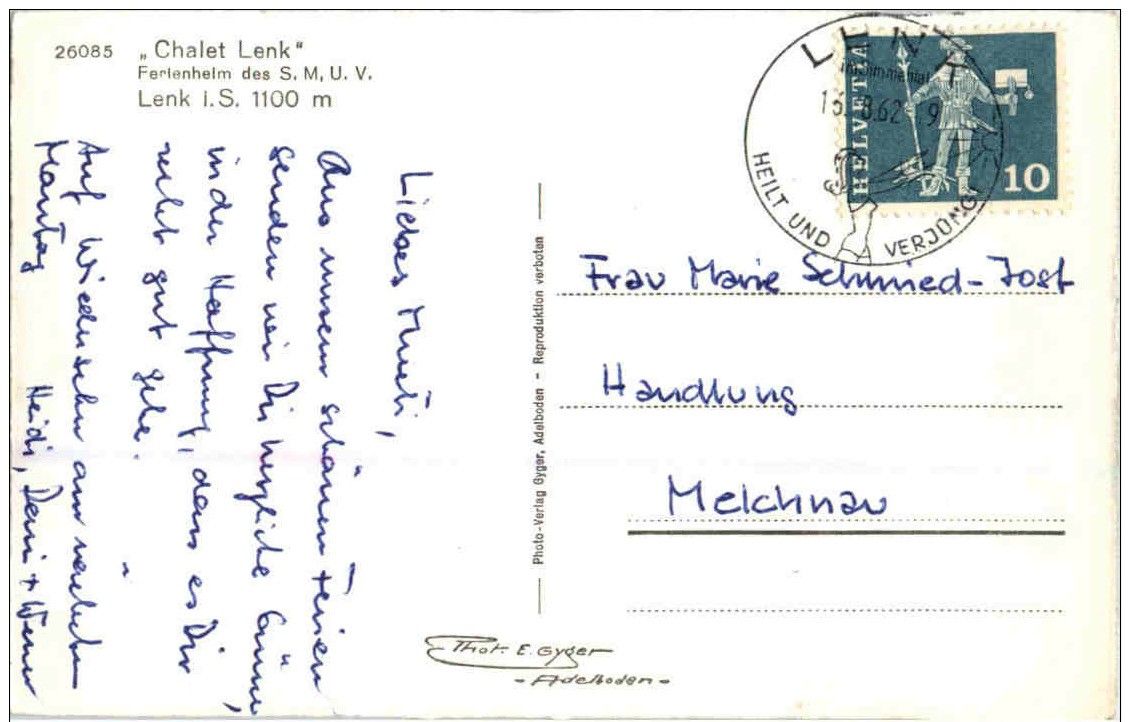 26085 „Chalet Lenk"
Ferienheim des S. M. U. V.
Lenk i.S. 1100 m
LENK
im Simmental
HEILT UND VERJÜNGT
HELVETIA
10
Liebes Mueti,
Aus unsern schönen Ferien
senden wir Dir herzliche Grüsse,
in der Hoffnung, dass es Dir
recht gut gehe.
Auf Wiedersehn am nächsten
Montag
Heidi, + Werner
Photo-Verlag Gyger, Adelboden - Reproduktion verboten
Frau Marie Schmied-Jost
Handlung
Melchnau
Phot. E. Gyger
- Adelboden -